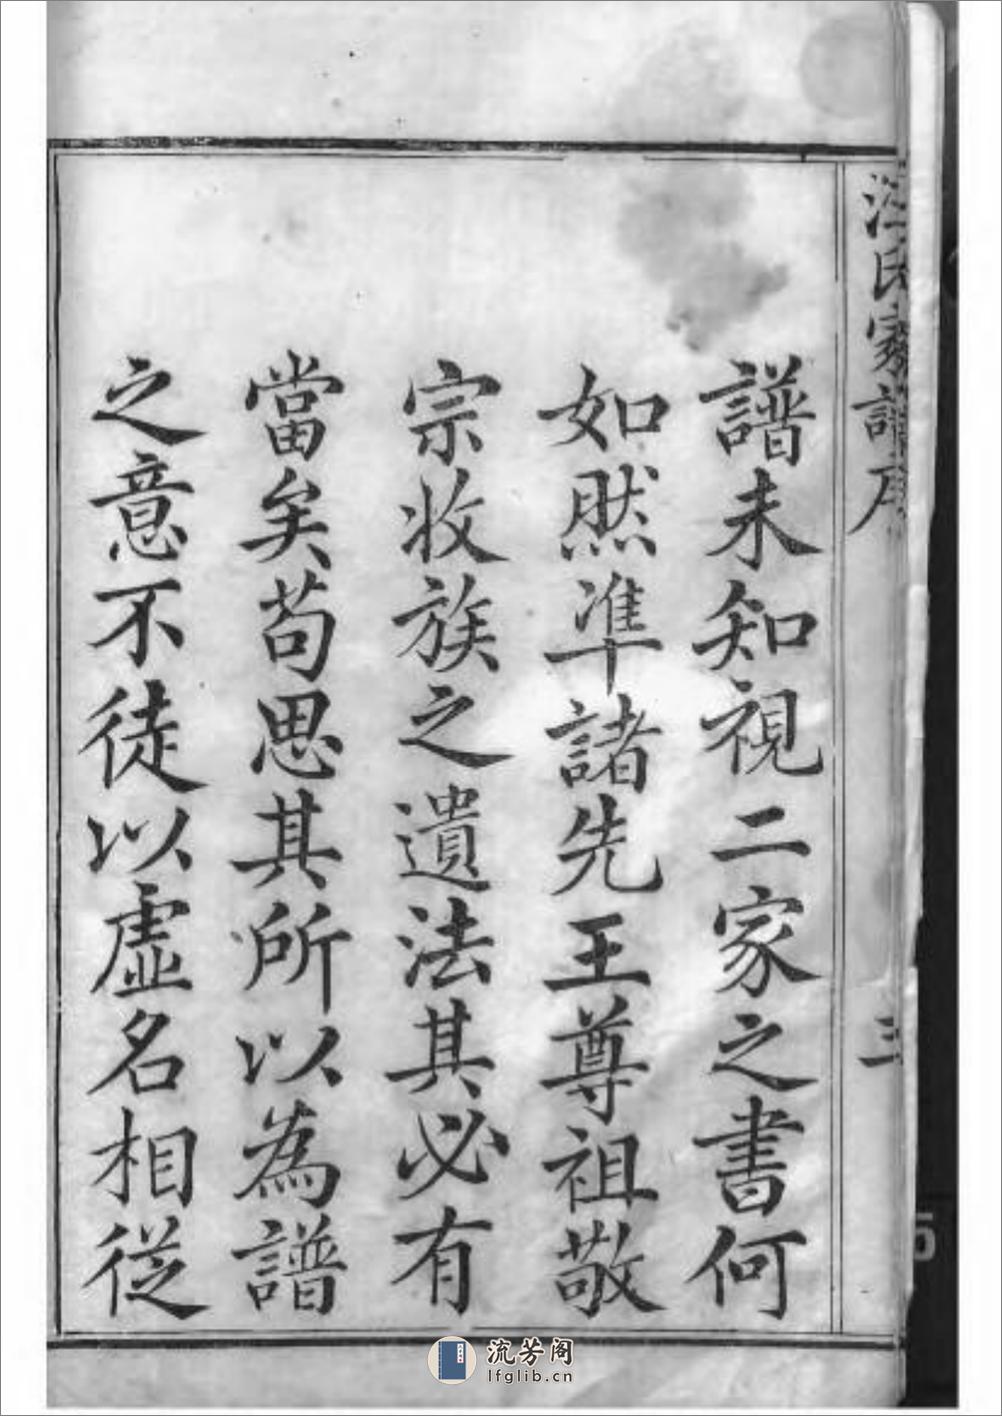 汪氏家譜序
三
譜未知視二家之書何
如然準諸先王尊祖敬
宗收族之遺法其必有
當矣苟思其所以為譜
之意不徒以虛名相從
流芳阁
lfglib.cn